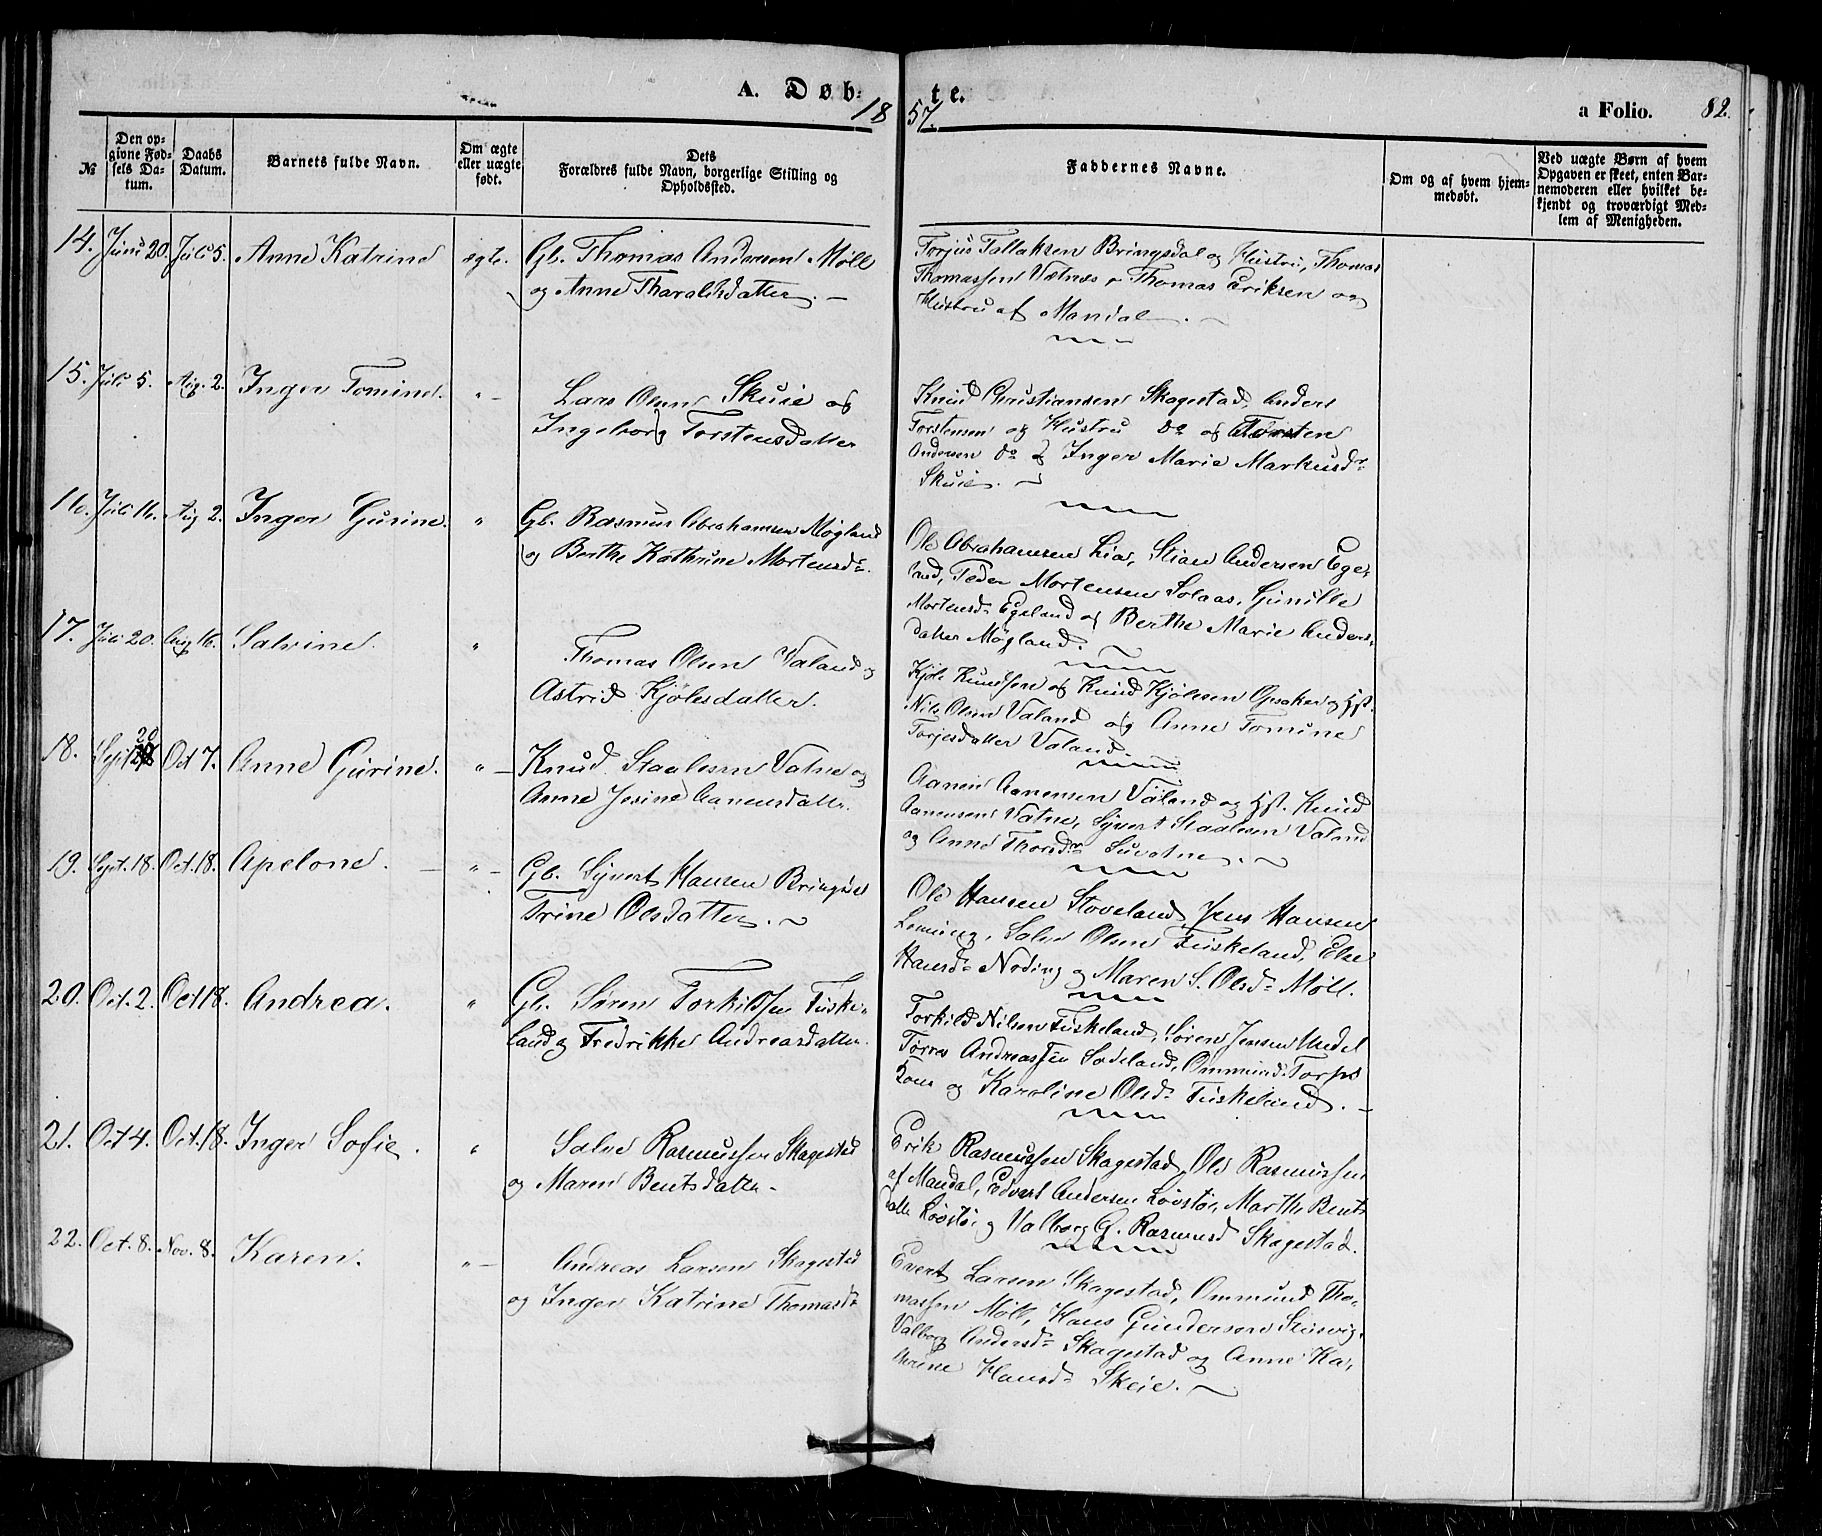 A. Døb- te.
1857.
a Folio. 82.
№
Den opgivne Fødsels Datum.
Daabs Datum.
Barnets fulde Navn.
Om ægte eller uægte født.
Dets Forældres fulde Navn, borgerlige Stilling og Opholdssted.
Faddernes Navne.
Om og af hvem hjemmedøbt.
Ved uægte Børn af hvem Opgaven er skeet, enten Barnemoderen eller hvilket bekjendt og troværdigt Medlem af Menigheden.
14. Juni 20. Juli 5. Anne Katrine ægte. Gb. Thomas Andersen Møll
og Anne Tharaldsdatter. —
Torjus Tallaksen Bringsdal og Hustru, Thomas
Thomassen Vatnes & Thomas Eriksen og
Hustru af Mandal.
15. Juli 5. Aug. 2. Inger Tomine. " — Lars Olsen Skuie og
Ingeborg Torstensdatter
Knud Christiansen Skagestad, Anders
Torstensen og Hustru do og Torsten
Andersen do & Inger Marie Markusdr
Skuie.
16. Juli 16. Aug 2. Inger Gurine. " Gb. Rasmus Abrahamsen Møgland
og Berthe Kathrine Mortensdr.
Ole Abrahamsen Lia, Stian Andersen Ege-
land, Peder Mortensen Solaas, Gunille
Mortensdr Egeland og Berthe Marie Anders-
datter Møgland.
17. Juli 20. Aug 16. Salvine. " Thomas Olsen Valand og
Astrid Kjølesdatter.
Kjøle Knudsen og Knud Kjølesen Opsaker og Hst.
Nils Olsen Valand og Anne Tomine
Torjesdatter Valand.
18. Sept 20 Oct 7. Anne Gurine. " — Knud Staalesen Vatne og
Anne Jesine Aanensdatter.
Aanen Aanensen Valand og Hst. Knud
Aanensen Vatne, Syvert Staalesen Valand
og Anne Thorsdr Suvatne.
19. Sept. 18. Oct. 18. Apelone. — " — Gb. Syvert Hansen
Trine Olsdatter.
Ole Hansen Stoveland, Jens Hansen
Salve Olsen Fuskeland, Else
Hansdr Noding og Maren S. Olsdr Møll.
20. Oct. 2. Oct 18. Andrea. " Gb. Søren Torkildsen Fuske-
land og Fredrikke Andreasdatter.
Torkild Nilsen Fuskeland, Søren Jensen Undel
Tørres Andreassen Sodeland, Ommund Torps
og Karoline Olsdr Fuskeland. —
21. Oct 4. Oct. 18. Inger Sofie. " Salve Rasmussen Skagestad
og Maren Bentsdatter —
Erik Rasmussen Skagestad, Ole Rasmussen
af Mandal, Edvart Andersen Løvstø, Marthe Bents
datter Løvstø, og Valborg G. Rasmusd Skagestad.
22. Oct. 8. Nov. 8. Karen. " — Andreas Larsen Skagestad
og Inger Katrine Thomasdr
Evert Larsen Skagestad, Ommund Tho-
massen Møll, Hans Gundersen
Valborg Andersdr Skagestad og Anne Ka-
thrine Hansdr Skeie.